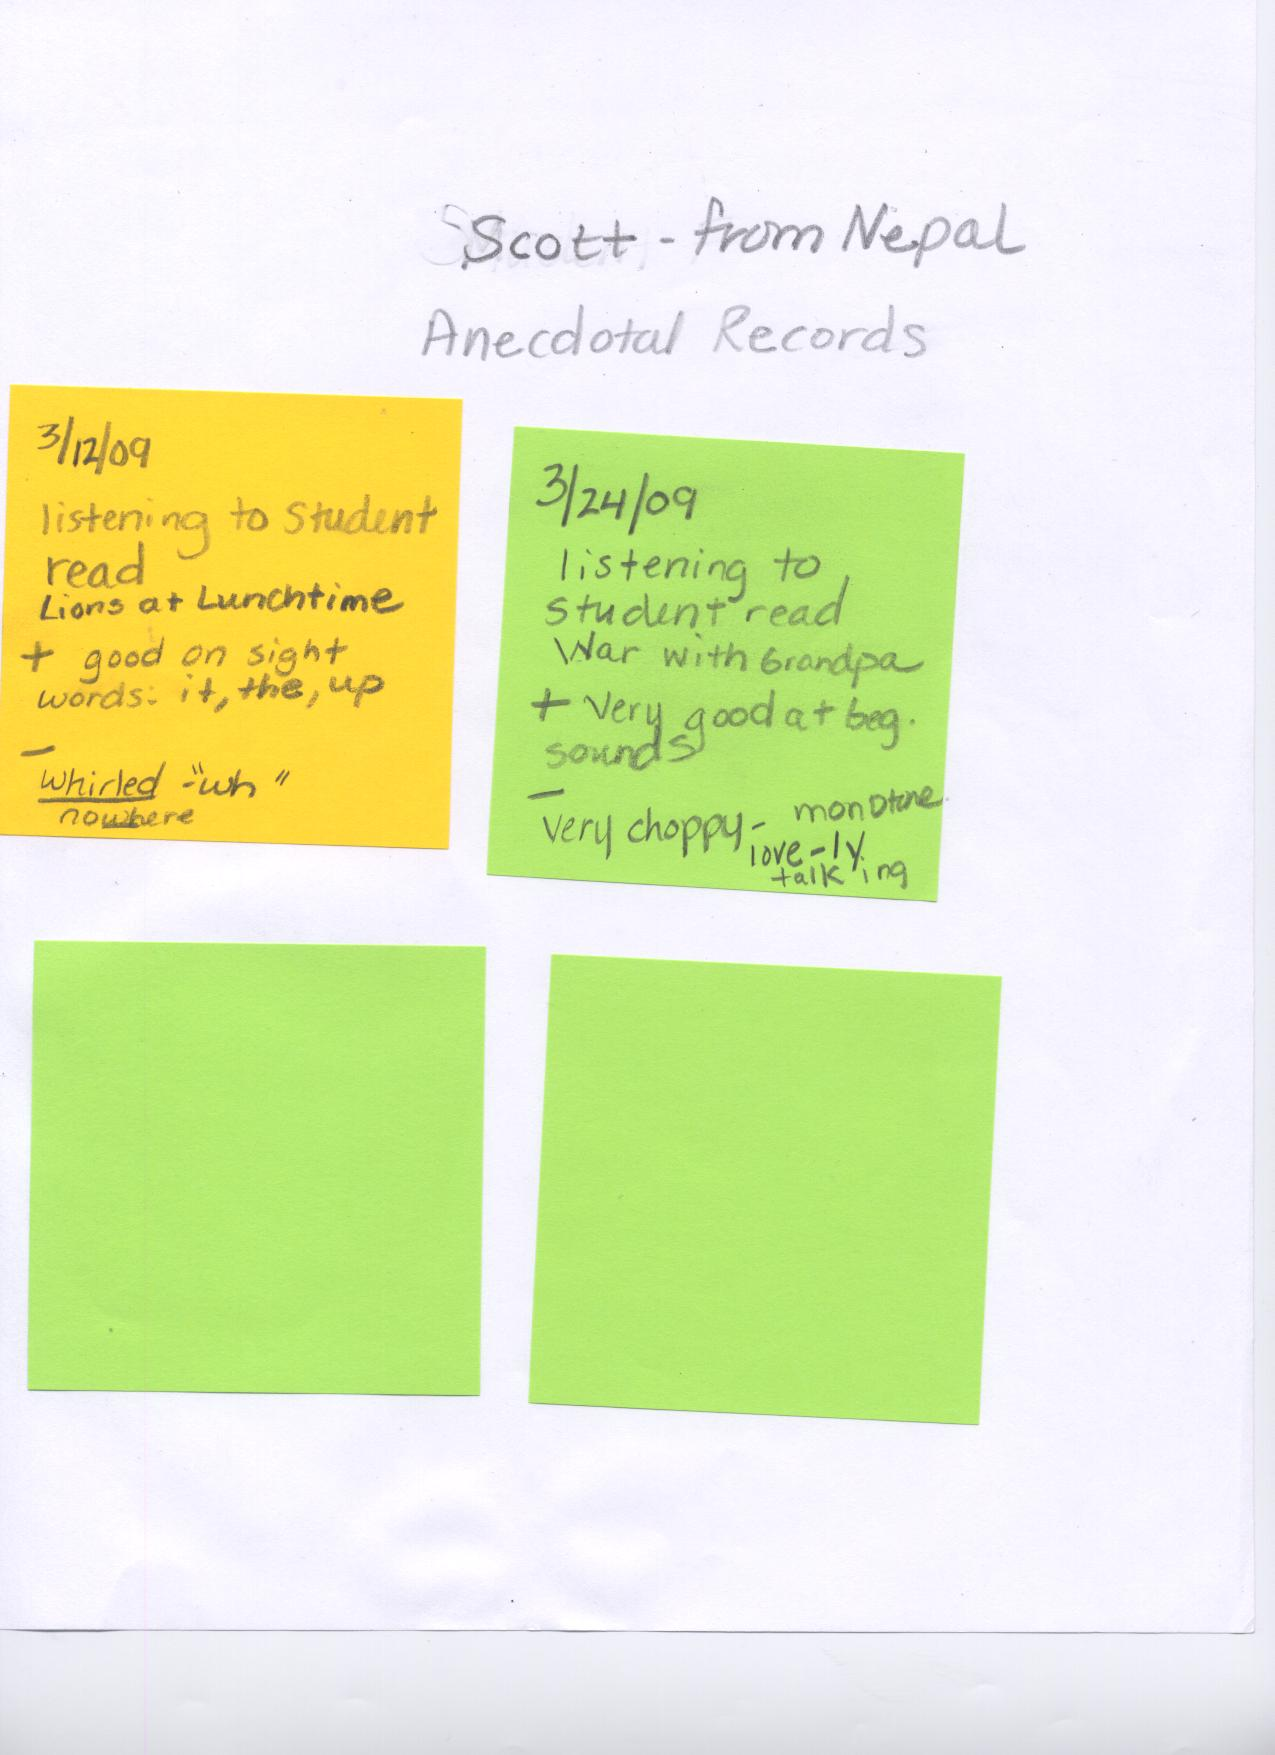 Scott - from Nepal
Anecdotal Records
3/12/09
listening to Student
read
Lions at Lunchtime
+ good on sight
words: it, the, up
-
whirled -"wh"
nowhere
3/24/09
listening to
student read
War with Grandpa
+ Very good at beg.
sounds
-
very choppy - monotone
love-ly
talk ing